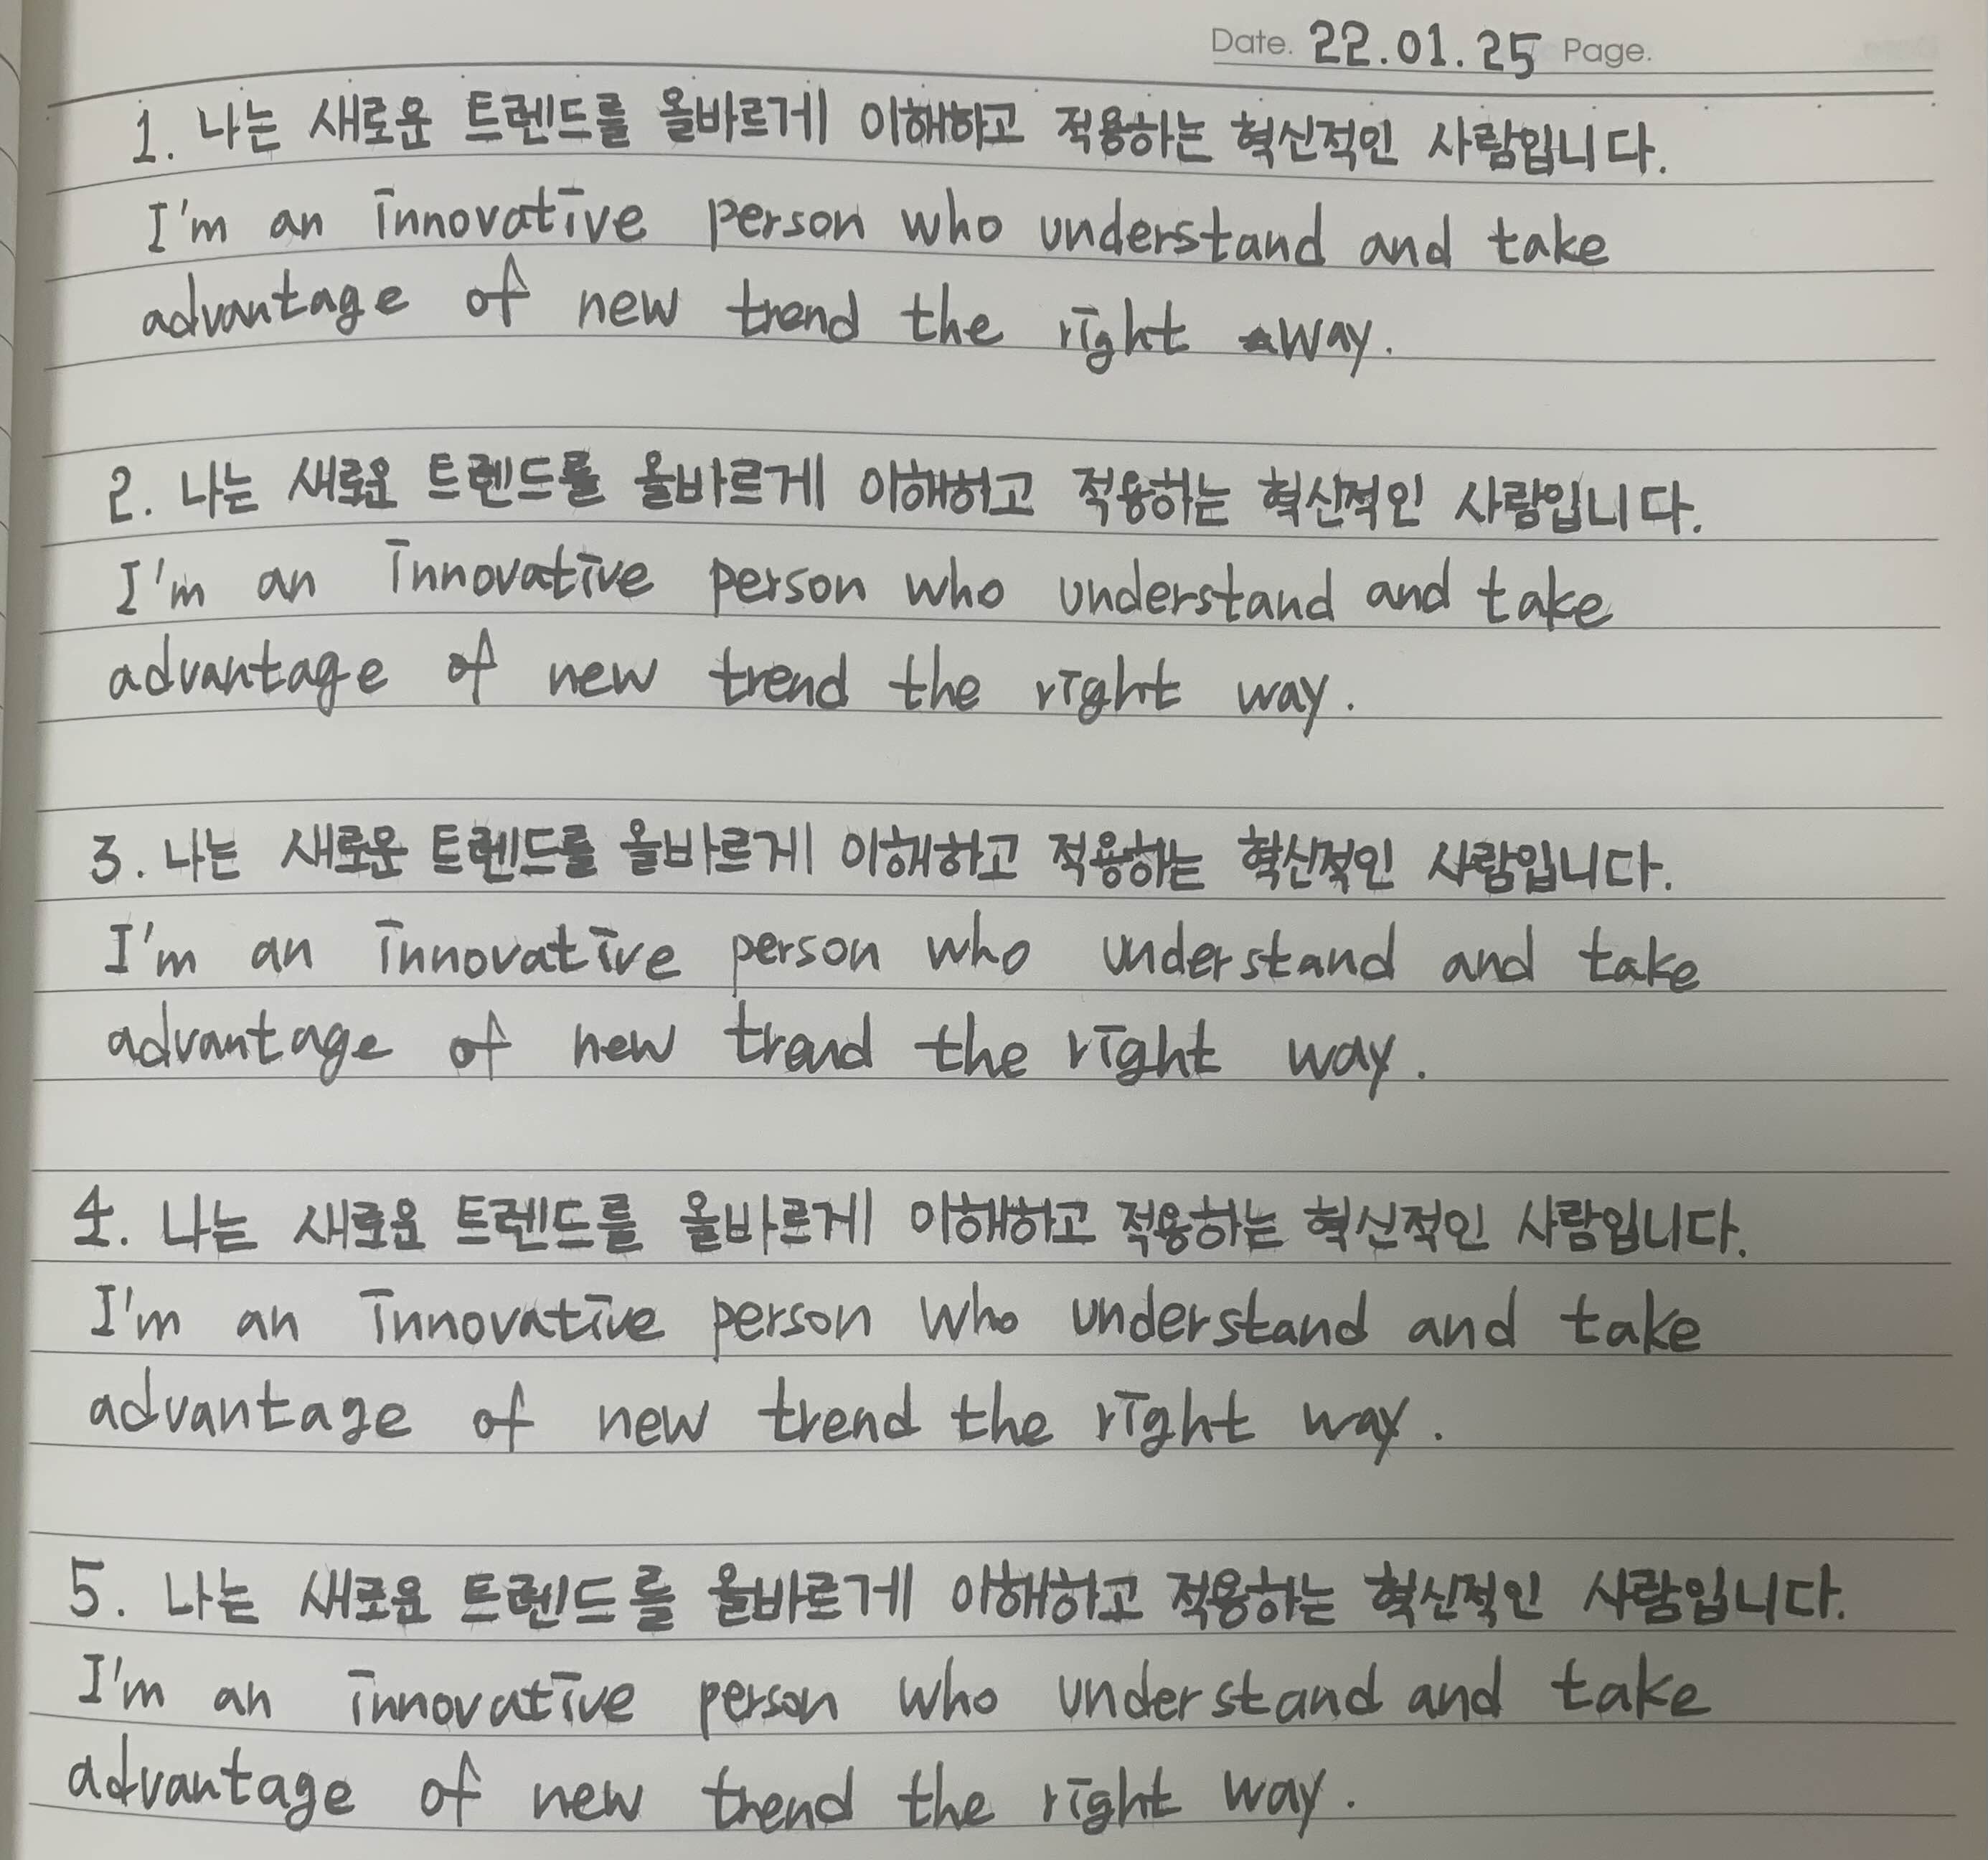 Date. 22.01.25 Page.
1. 나는 새로운 트렌드를 올바르게 이해하고 적용하는 혁신적인 사람입니다.
I'm an innovative person who understand and take
advantage of new trend the right way.
2. 나는 새로운 트렌드를 올바르게 이해하고 적용하는 혁신적인 사람입니다.
I'm an innovative person who understand and take
advantage of new trend the right way.
3. 나는 새로운 트렌드를 올바르게 이해하고 적용하는 혁신적인 사람입니다.
I'm an innovative person who understand and take
advantage of new trend the right way.
4. 나는 새로운 트렌드를 올바르게 이해하고 적용하는 혁신적인 사람입니다.
I'm an innovative person who understand and take
advantage of new trend the right way.
5. 나는 새로운 트렌드를 올바르게 이해하고 적용하는 혁신적인 사람입니다.
I'm an innovative person who understand and take
advantage of new trend the right way.